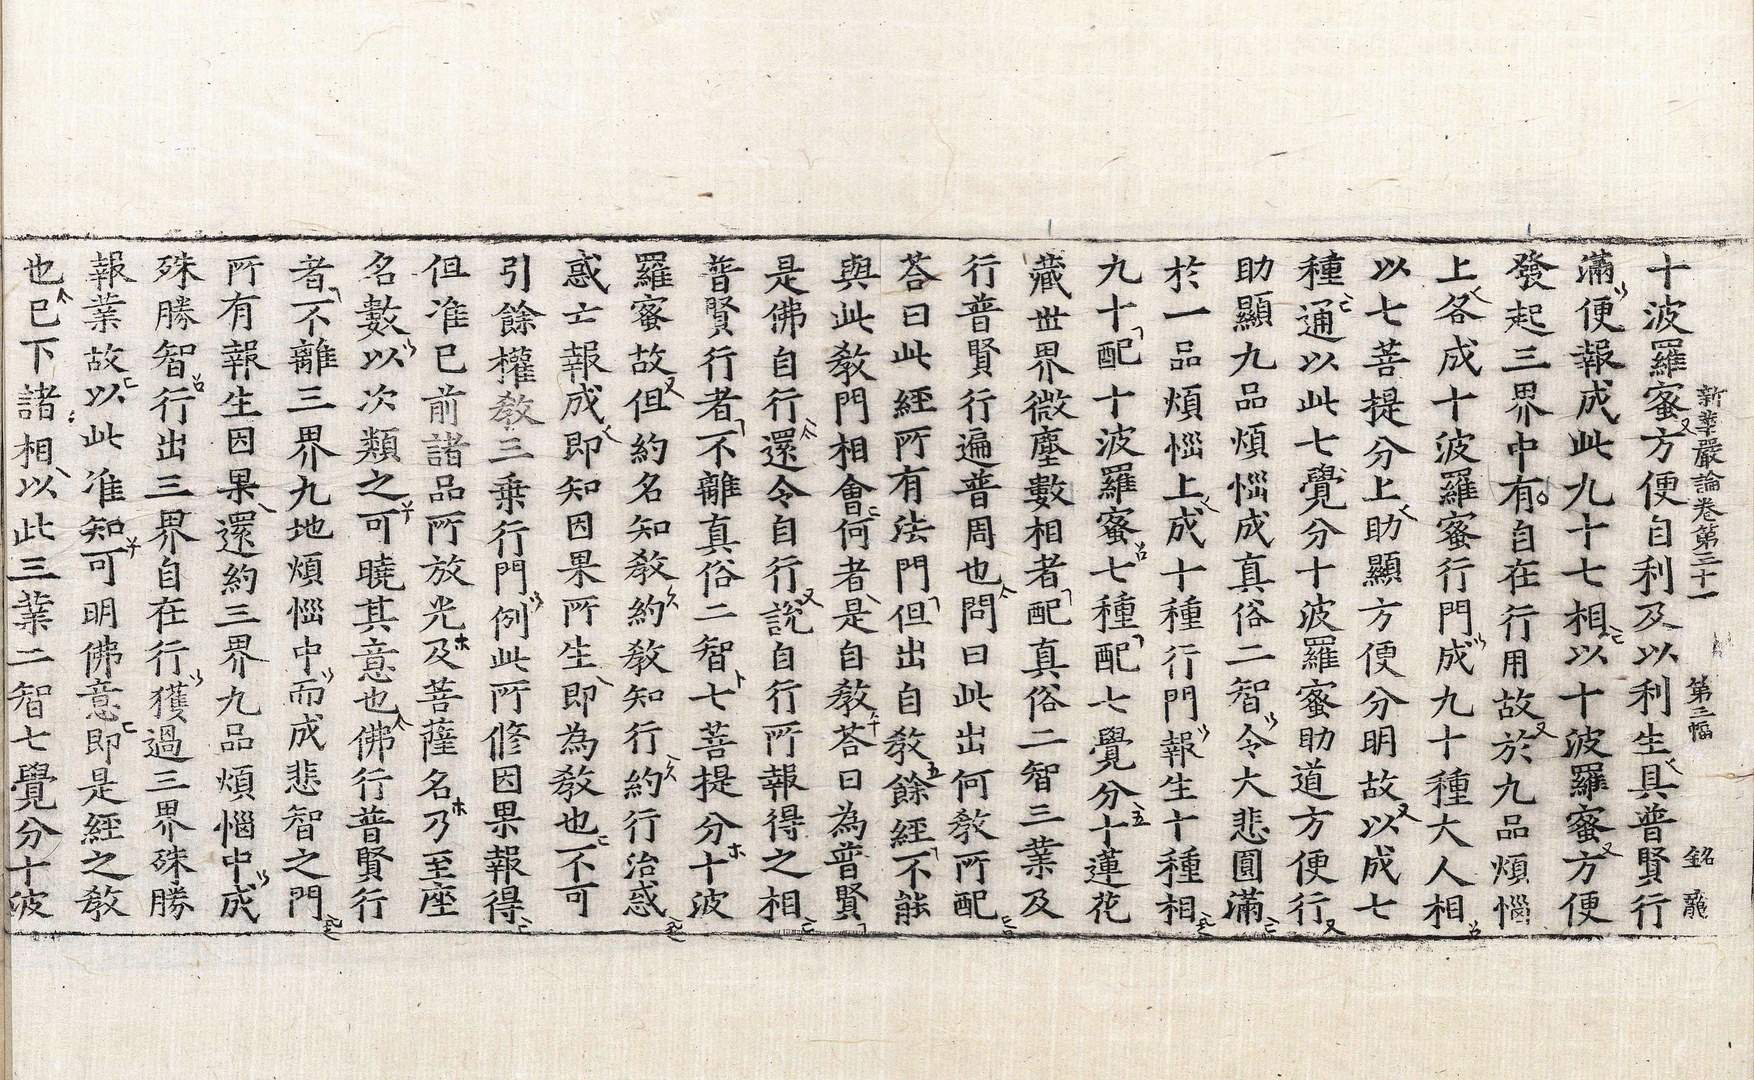 新華嚴論卷第三十一 第二幅 銘 龍
十波羅蜜方便自利及以利生具普賢行
滿便報成此九十七相以十波羅蜜方便
發起三界中有自在行用故於九品煩惱
上各成十波羅蜜行門成九十種大人相
以七菩提分上助顯方便分明故以成七
種通以此七覺分十波羅蜜助道方便行
助顯九品煩惱成真俗二智令大悲圓滿
於一品煩惱上成十種行門報生十種相
九十配十波羅蜜七種配七覺分十蓮花
藏世界微塵數相者配真俗二智三業及
行普賢行遍普周也問曰此出何教所配
荅曰此經所有法門但出自教餘經不能
與此教門相會何者是自教荅曰為普賢
是佛自行還令自行說自行所報得之相
普賢行者不離真俗二智七菩提分十波
羅蜜故但約名知教約教知行約行治惑
惑亡報成即知因果所生即為教也不可
引餘權教三乗行門例此所修因果報得
但准已前諸品所放光及菩薩名乃至座
名數以次類之可曉其意也佛行普賢行
者不離三界九地煩惱中而成悲智之門
所有報生因果還約三界九品煩惱中成
殊勝智行出三界自在行獲過三界殊勝
報業故以此准知可明佛意即是經之教
也已下諸相以此三業二智七覺分十波